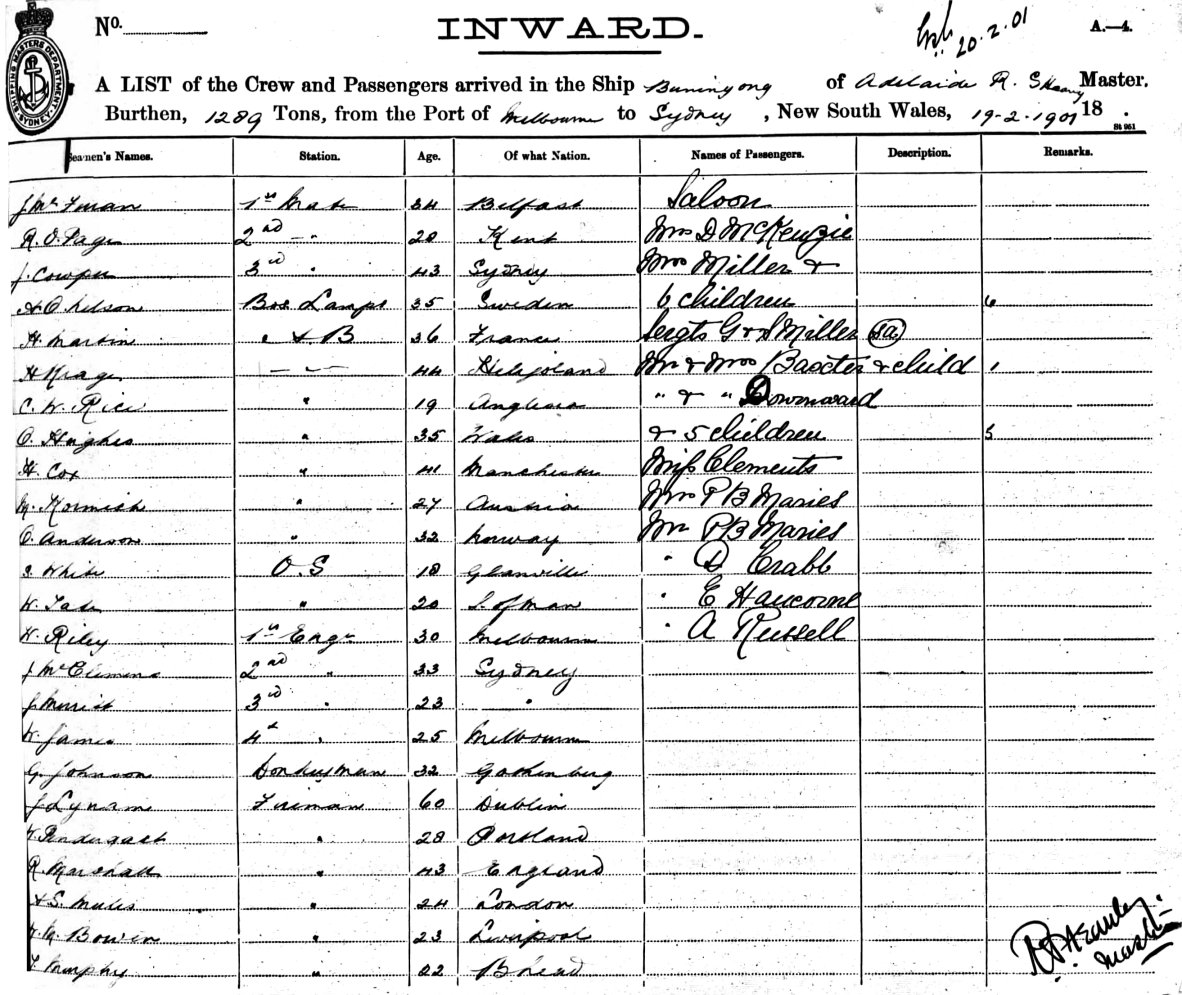 No.
INWARD.
20.2.01
A.—4.
SHIPPING MASTERS DEPARTMENT SYDNEY
A LIST of the Crew and Passengers arrived in the Ship Buninyong of Adelaide R. Master.
Burthen, 1289 Tons, from the Port of Melbourne to Sydney, New South Wales, 19-2-1901 18
St 961
Seamen's Names. Station. Age. Of what Nation. Names of Passengers. Description. Remarks.
1st Mate 34 Belfast Saloon
R.O. Page 2nd " 20 Kent Mrs D McKenzie
J. Cowper 3rd " 43 Sydney Mrs Miller &
Bos. Lamps 35 Sweden 6 children 6
H. Martin " A.B 36 France Sergts G & S Miller sa
H Krage 44 Heligoland Mr & Mrs Baxter & child 1
C. W. Rice " 19 Anglesea " & " Downward
O. Hughes " 35 Wales & 5 children 5
H. Cox " 41 Manchester Miss Clements
M. Kormish " 27 Austria Mrs P B Maries
O. Anderson " 32 Norway Mr P B Maries
S. White O.S 18 Glanville " D Crabb
W. Tate " 20 I. of Man " E
W. Riley 1st Engr 30 Melbourne " A Russell
J McClemens 2nd " 33 Sydney
J 3rd " 23 "
W. James 4th " 25 Melbourne
G. Johnson Donkeyman 32 Gothenburg
J Lynam Fireman 60 Dublin
Pendergast " 28 Portland
R. Marshall " 43 England
" 24 London
Bowen " 23 Liverpool
T. Murphy " 22 B'head
Master